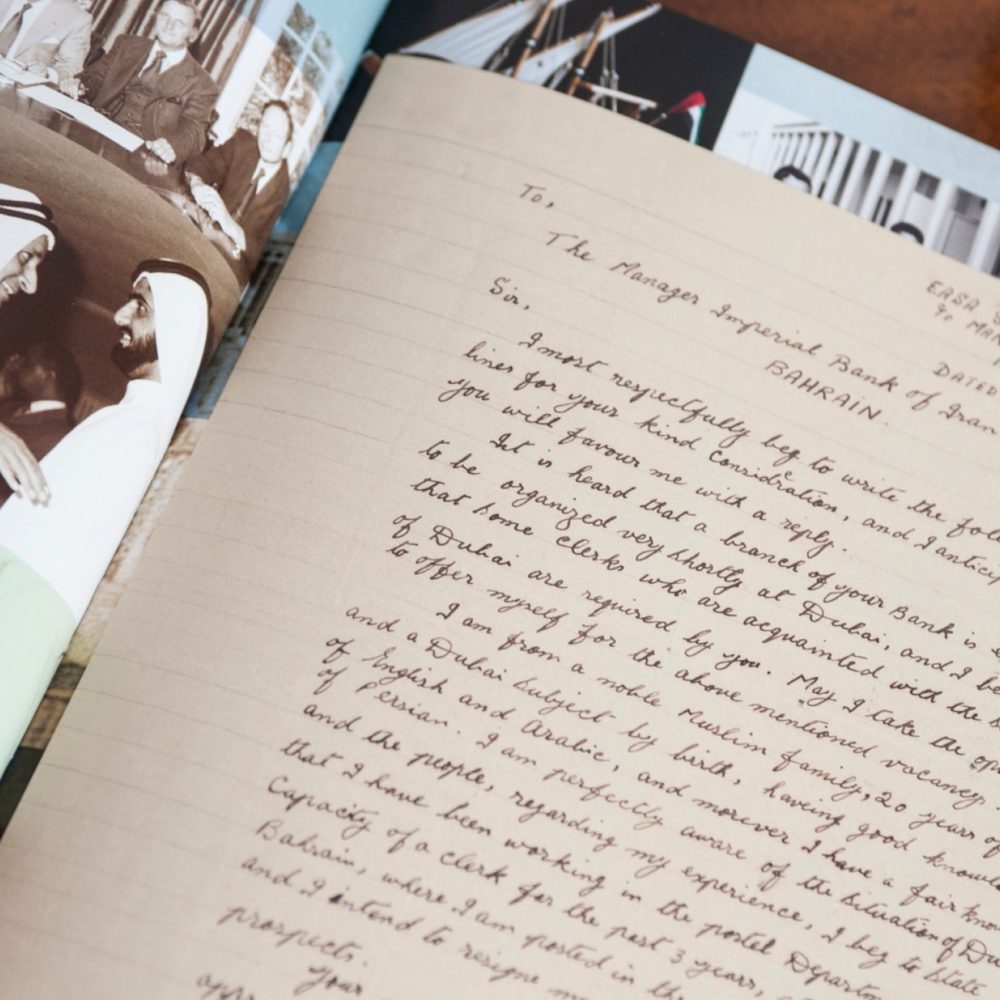 To,
EASA
c/o MAN
The Manager Imperial Bank of Iran
DATED
BAHRAIN.
Sir,
I most respectfully beg to write the foll
lines for your kind consideration, and I anticip
you will favour me with a reply.
It is heard that a branch of your Bank is e
to be organized very shortly at Dubai, and I be
that some clerks who are acquainted with the s
of Dubai are required by you. May I take the opp
to offer myself for the above mentioned vacancy.
I am from a noble Muslim family, 20 years of
and a Dubai subject by birth, haveing good knowle
of English and Arabic, and morever I have a fair know
of Persian. I am perfectly aware of the situation of Du
and the people, regarding my experience, I beg to state
that I have been working in the postel Departm
Capacity of a clerk for the past 3 years,
Bahrain, where I am posted in the
and I intend to resigne m
prospects.
Your
appr